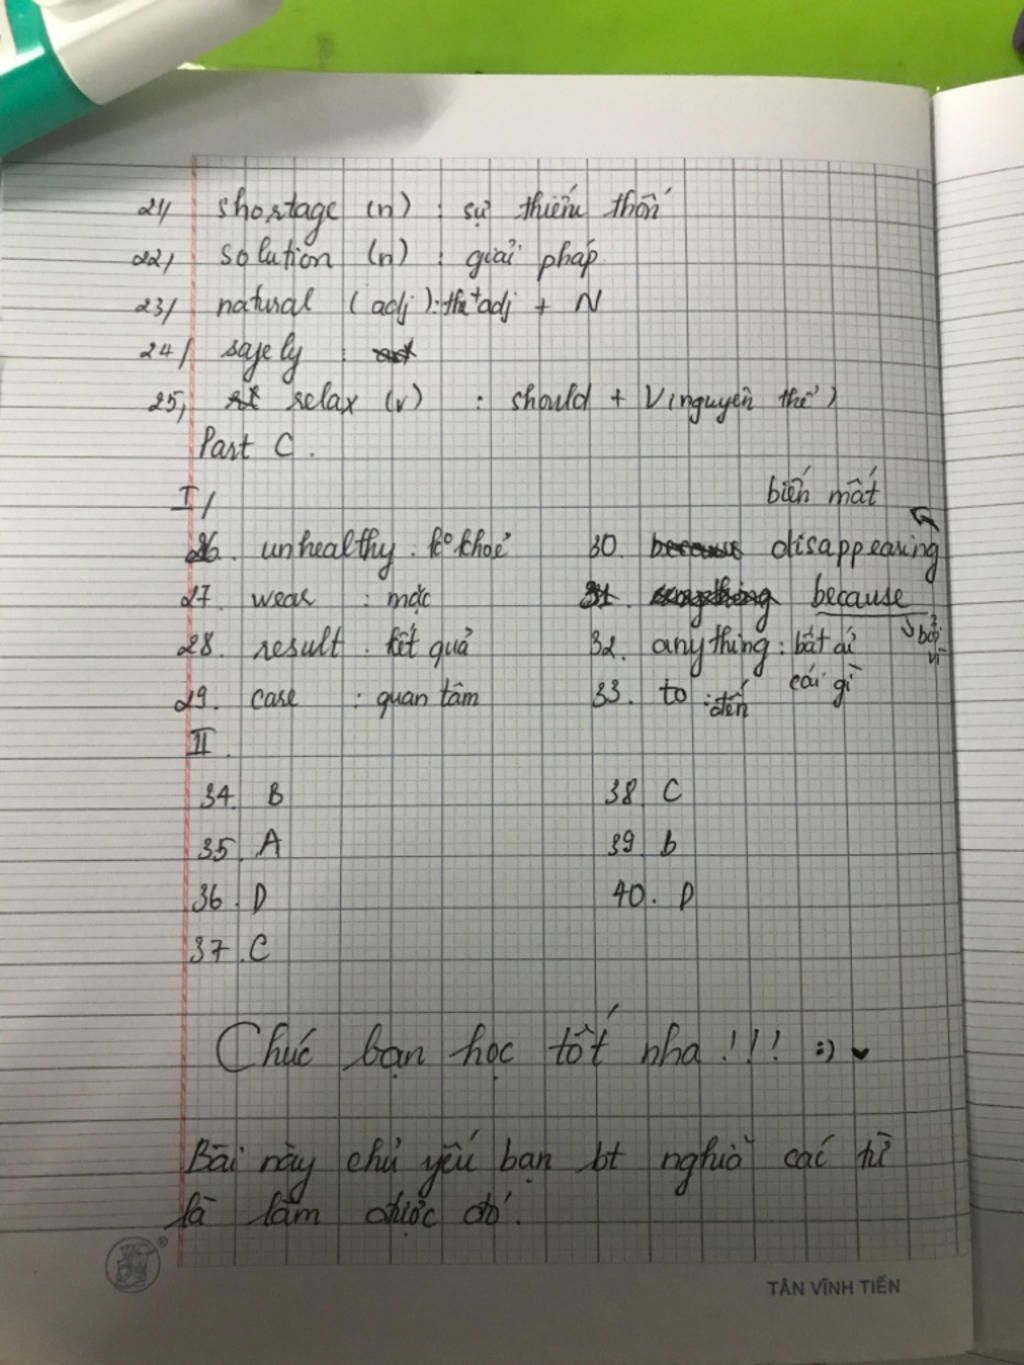 21/ shortage (n) : sự thiếu thốn
22/ solution (n) : giải pháp
23/ natural (adj): the + adj + N
24/ safely :
25/ relax (v) : should + V(nguyên thể)
Part C.
I/
biến mất
26. unhealthy. ko khoẻ
30. disappearing
27. wear : mặc
31. because
bởi vì
28. result. kết quả
32. anything: bất cứ
cái gì
29. care : quan tâm
33. to : đến
II.
34. B
38. C
35. A
39. b
36. D
40. D
37. C
Chúc bạn học tốt nha!!! :) 
Bài này chủ yếu bạn bt nghiã các từ
là làm được đó.
®
TÂN VĨNH TIẾN